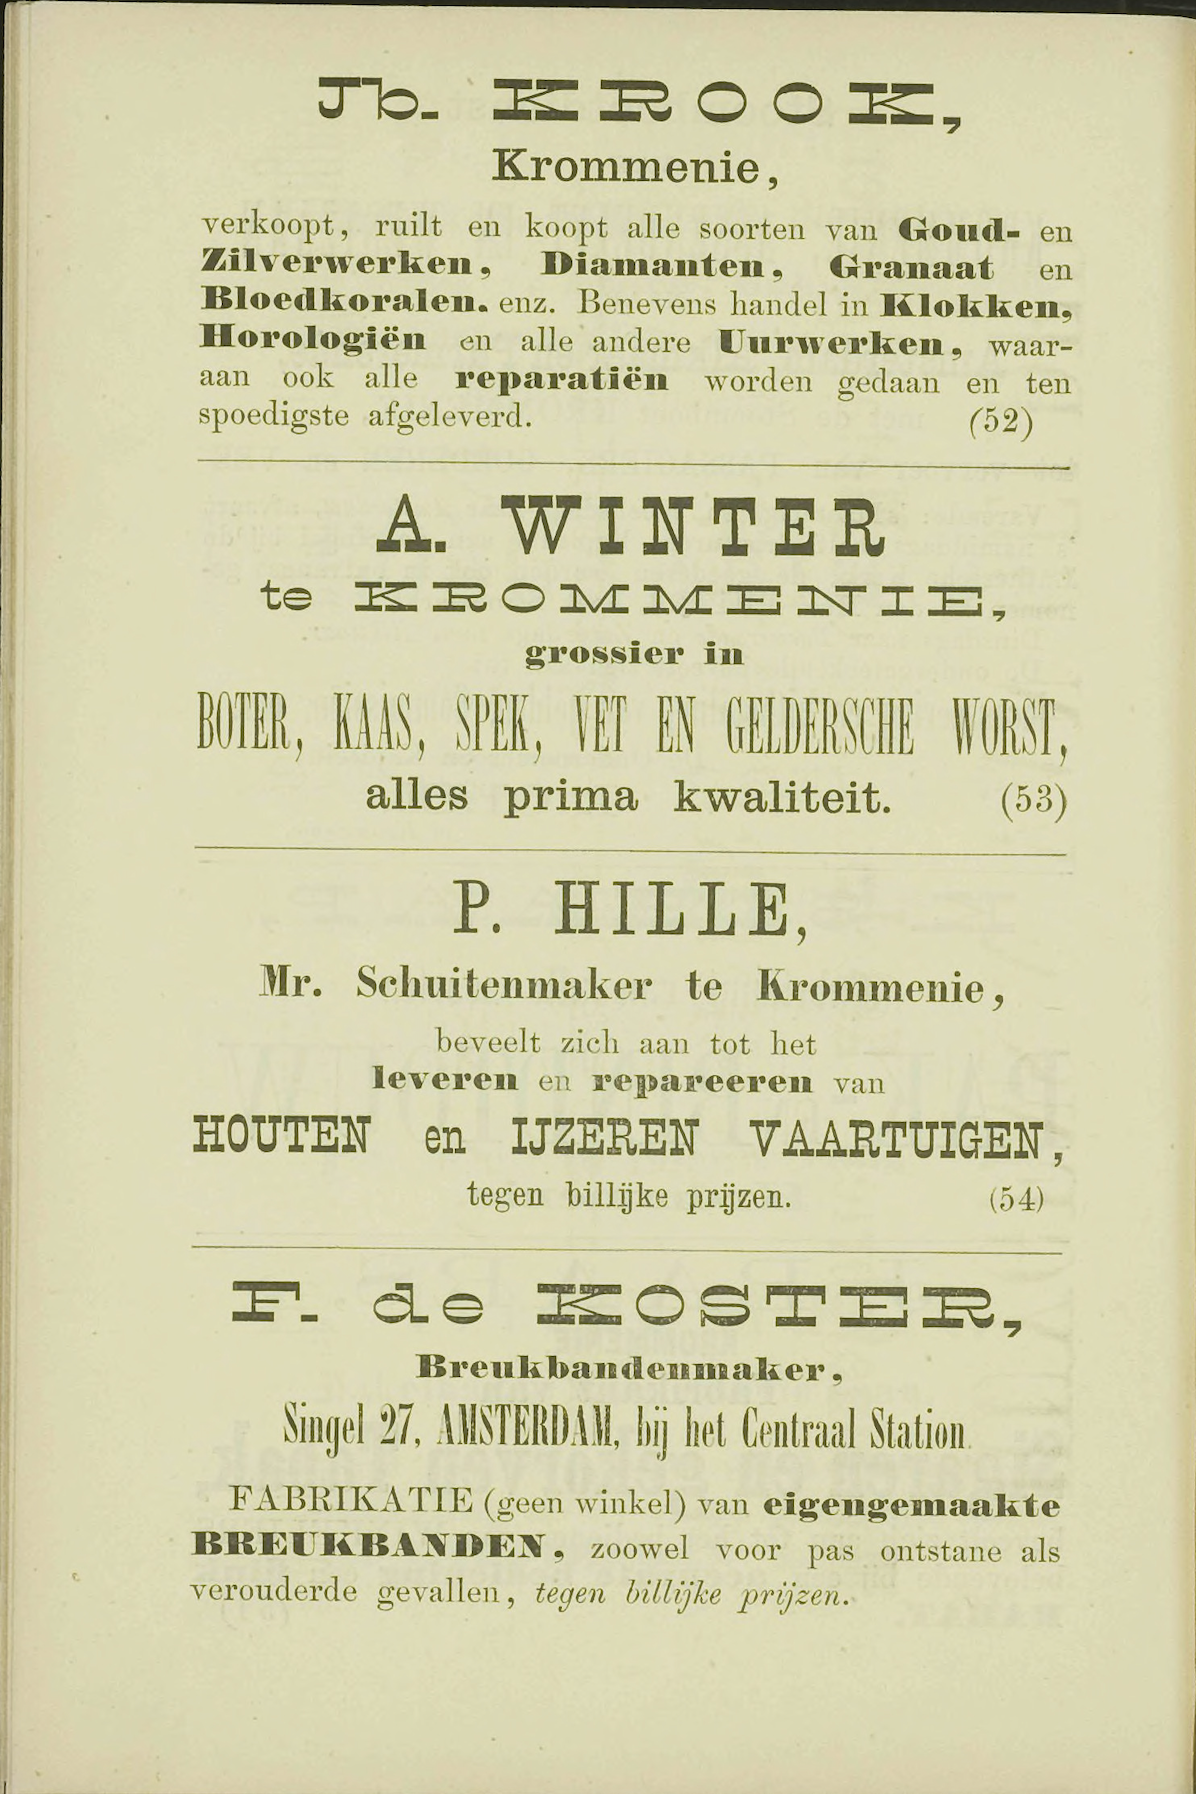 Jb. KROOK,
Krommenie,
verkoopt, ruilt en koopt alle soorten van Goud- en
Zilverwerken, Diamanten, Granaat en
Bloedkoralen. enz. Benevens handel in Klokken,
Horologiën en alle andere Uurwerken, waar-
aan ook alle reparatiën worden gedaan en ten
spoedigste afgeleverd. (52)
A. WINTER
te KROMMENIE,
grossier in
BOTER, KAAS, SPEK, VET EN GELDERSCHE WORST,
alles prima kwaliteit. (53)
P. HILLE,
Mr. Schuitenmaker te Krommenie,
beveelt zich aan tot het
leveren en repareeren van
HOUTEN en IJZEREN VAARTUIGEN,
tegen billijke prijzen. (54)
F. de KOSTER,
Breukbandenmaker,
Singel 27, AMSTERDAM, bij het Centraal Station.
FABRIKATIE (geen winkel) van eigengemaakte
BREUKBANDEN, zoowel voor pas ontstane als
verouderde gevallen, tegen billijke prijzen.